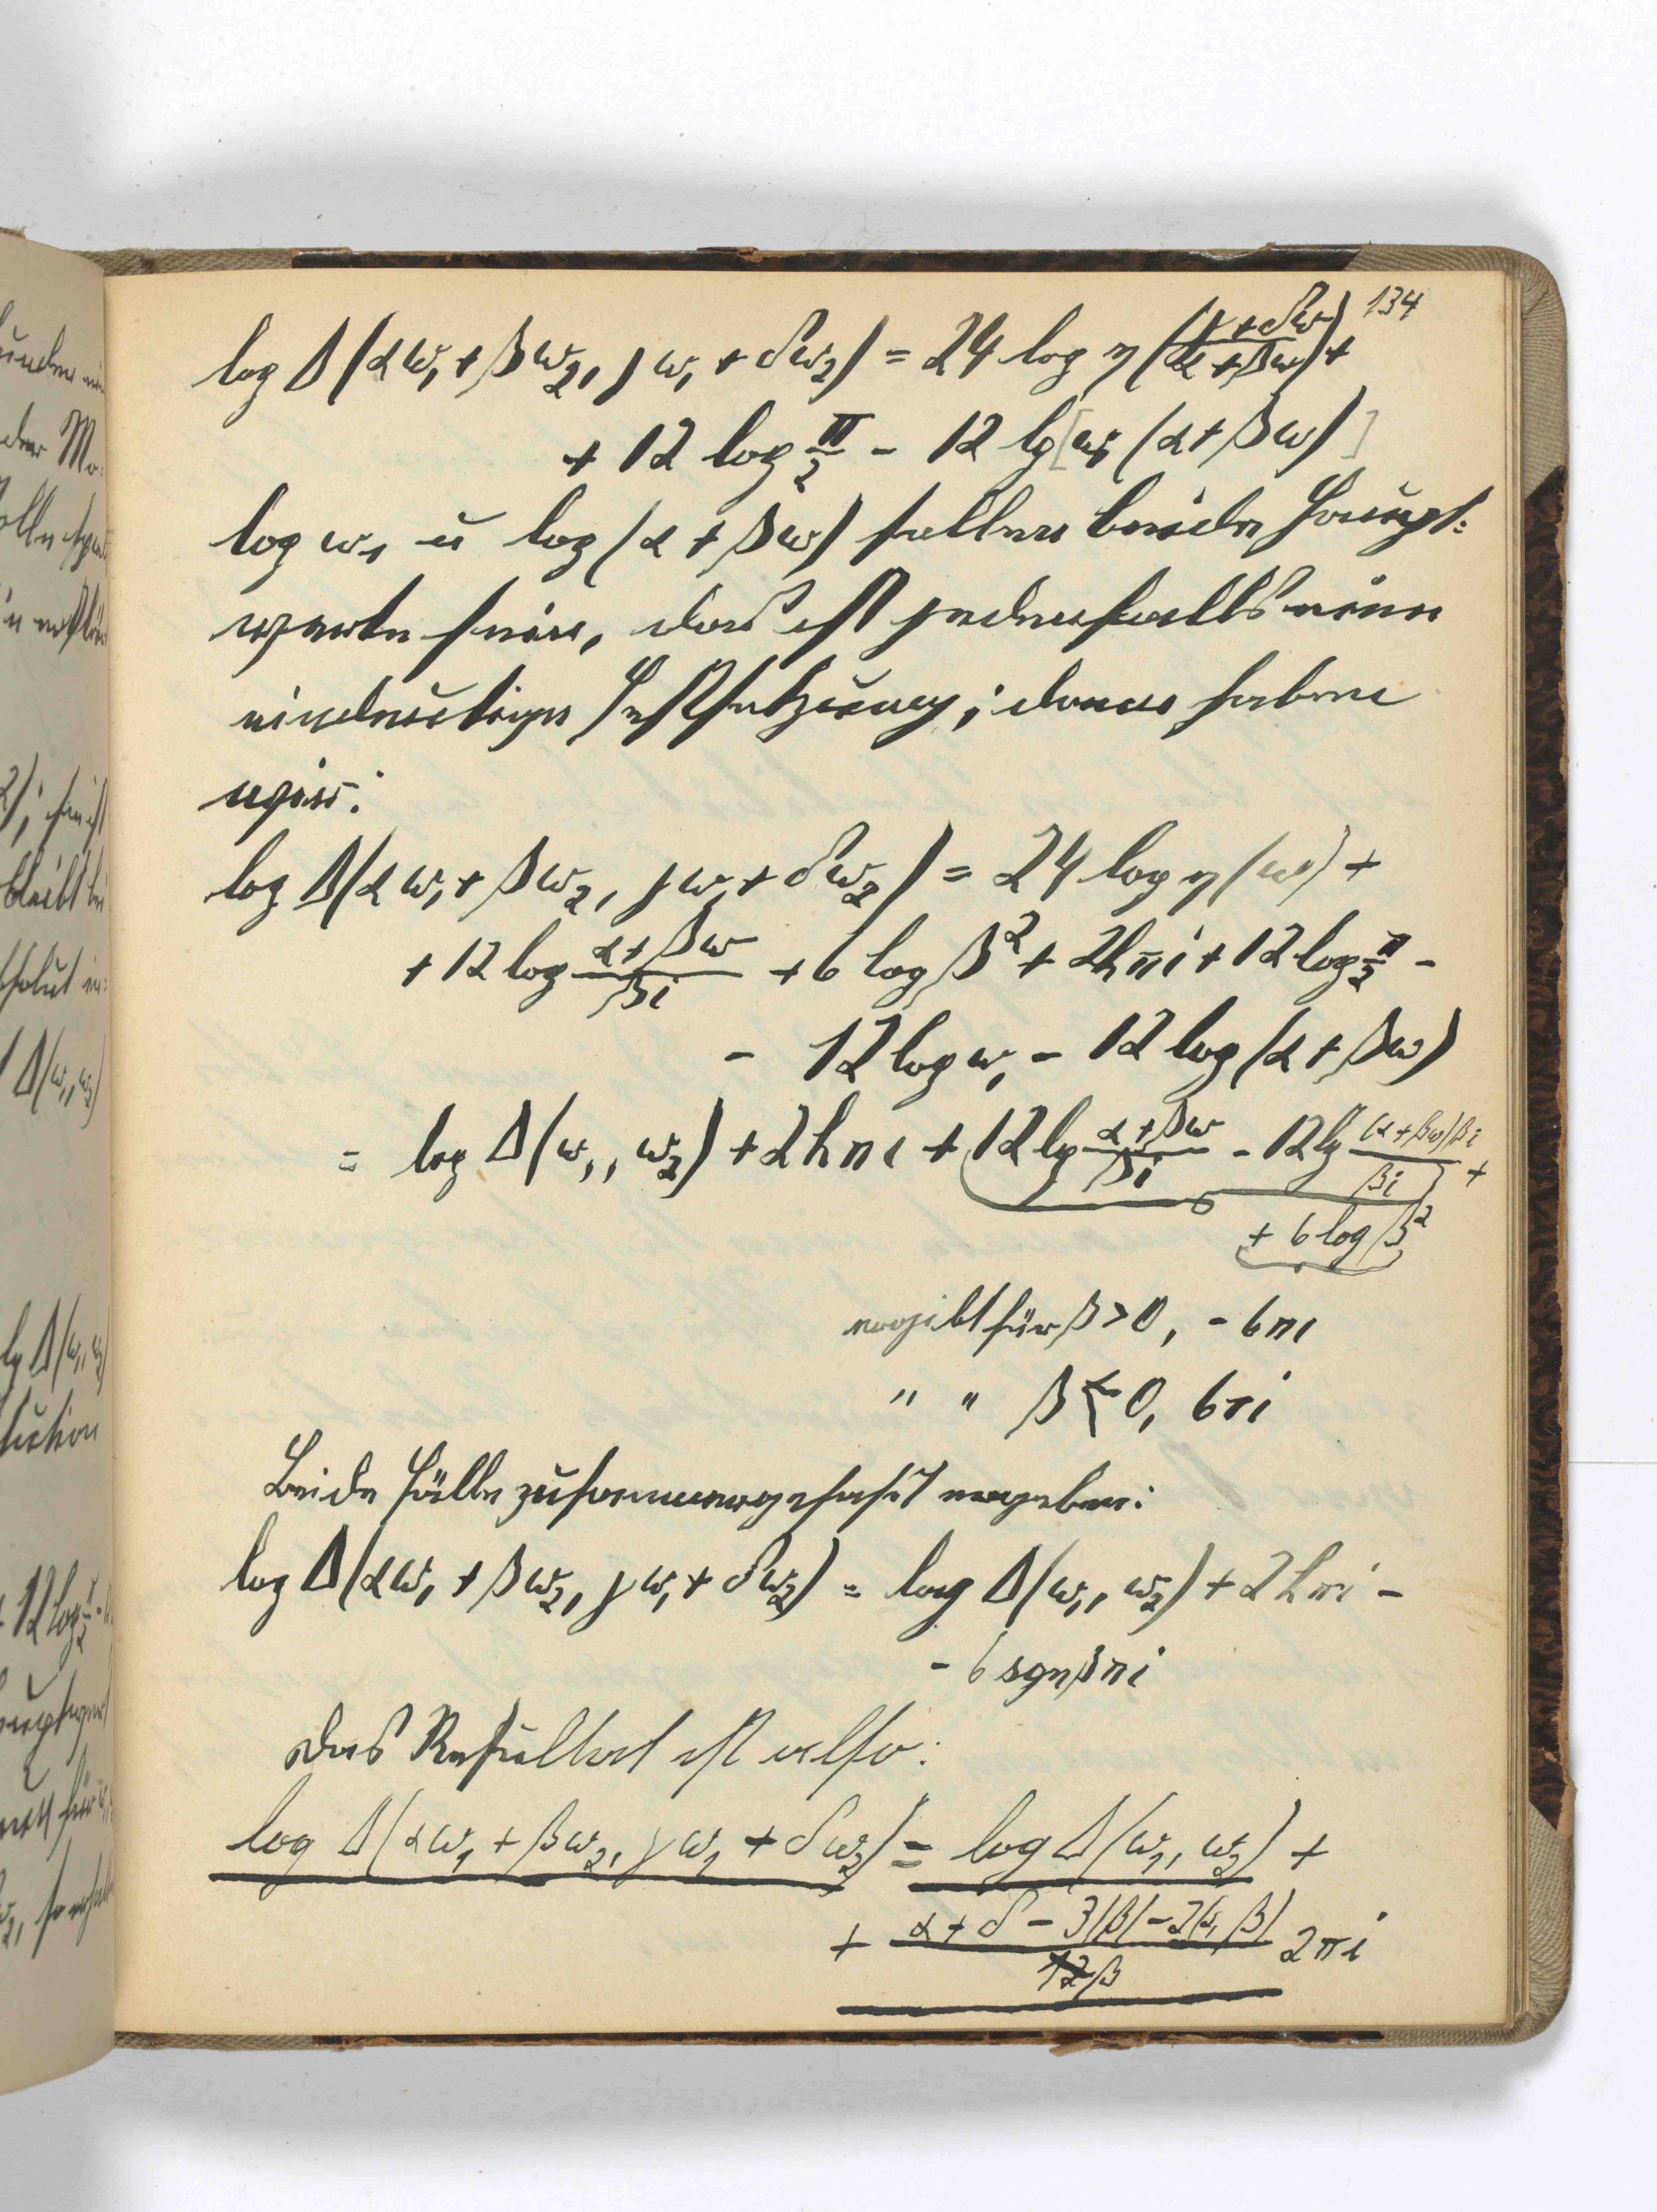 134
log Δ(αω₁ + βω₂, γω₁ + δω₂) = 24 log η((γ+δω)/(α+βω)) +
+ 12 log π/2 − 12 lg[ω₁ (α + βω)]
log ω₁ u log (α + βω) sollen beide Haupt-
werte sein, das ist jedenfalls eine
eindeutige Festsetzung; dann haben
wir:
log Δ(αω₁ + βω₂, γω₁ + δω₂) = 24 log η(ω) +
+ 12 log (α+βω)/(βi) + 6 log β² + 2hπi + 12 log π/2 −
− 12 log ω₁ − 12 log (α + βω)
= log Δ(ω₁, ω₂) + 2hπi + 12 lg (α+βω)/(βi) − 12 lg ((α+βω)βi)/(βi) +
+ 6 log β²
ergibt für β > 0, − 6πi
" " β < 0, 6πi
Beide Fälle zusammengefaßt ergeben:
log Δ(αω₁ + βω₂, γω₁ + δω₂) = log Δ(ω₁, ω₂) + 2hπi −
− 6 sgnβπi
Das Resultat ist also:
log Δ(αω₁ + βω₂, γω₁ + δω₂) = log Δ(ω₁, ω₂) +
+ (α + δ − 3|β| − 2(α, β))/(β) 2πi